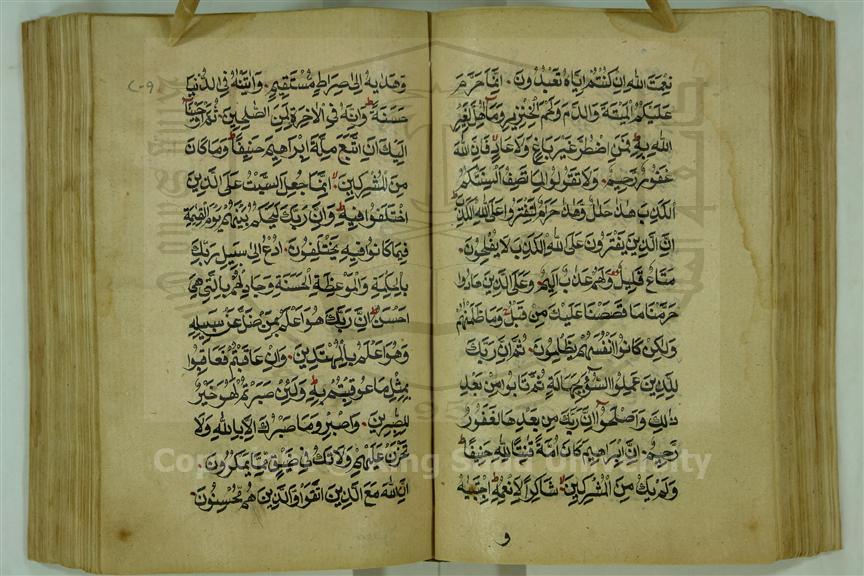 نعمت الله ان كنتم اياه تعبدون. انما حرم
عليكم الميتة والدم ولحم الخنزير وما اهل لغير
الله به فمن اضطر غير باغ ولا عاد فان الله
غفور رحيم. ولا تقولوا لما تصف السنتكم
الكذب هذا حلل وهذا حرام لتفتروا على الله الكذب
ان الذين يفترون على الله الكذب لا يفلحون.
متاع قليل ولهم عذاب اليم. وعلى الذين هادوا
حرمنا ما قصصنا عليك من قبل وما ظلمنهم
ولكن كانوا انفسهم يظلمون. ثم ان ربك
للذين عملوا السوء بجهالة ثم تابوا من بعد
ذلك واصلحوا ان ربك من بعدها لغفور
رحيم. ان ابراهيم كان امة قنتا لله حنيفا
ولم يك من المشركين. شاكرا لانعمه اجتبيه
و
وهديه الى صراط مستقيم. واتينه في الدنيا
حسنة وانه في الاخرة لمن الصلحين. ثم اوحينا
اليك ان اتبع ملة ابراهيم حنيفا وما كان
من المشركين. انما جعل السبت على الذين
اختلفوا فيه وان ربك ليحكم بينهم يوم القيمة
فيما كانوا فيه يختلفون. ادع الى سبيل ربك
بالحكمة والموعظة الحسنة وجادلهم بالتي هي
احسن ان ربك هو اعلم بمن ضل عن سبيله
وهو اعلم بالمهتدين. وان عاقبتم فعاقبوا
بمثل ما عوقبتم به ولئن صبرتم لهو خير
للصبرين. واصبر وما صبرك الا بالله ولا
تحزن عليهم ولا تك في ضيق مما يمكرون.
ان الله مع الذين اتقوا والذين هم محسنون.
King Saud University